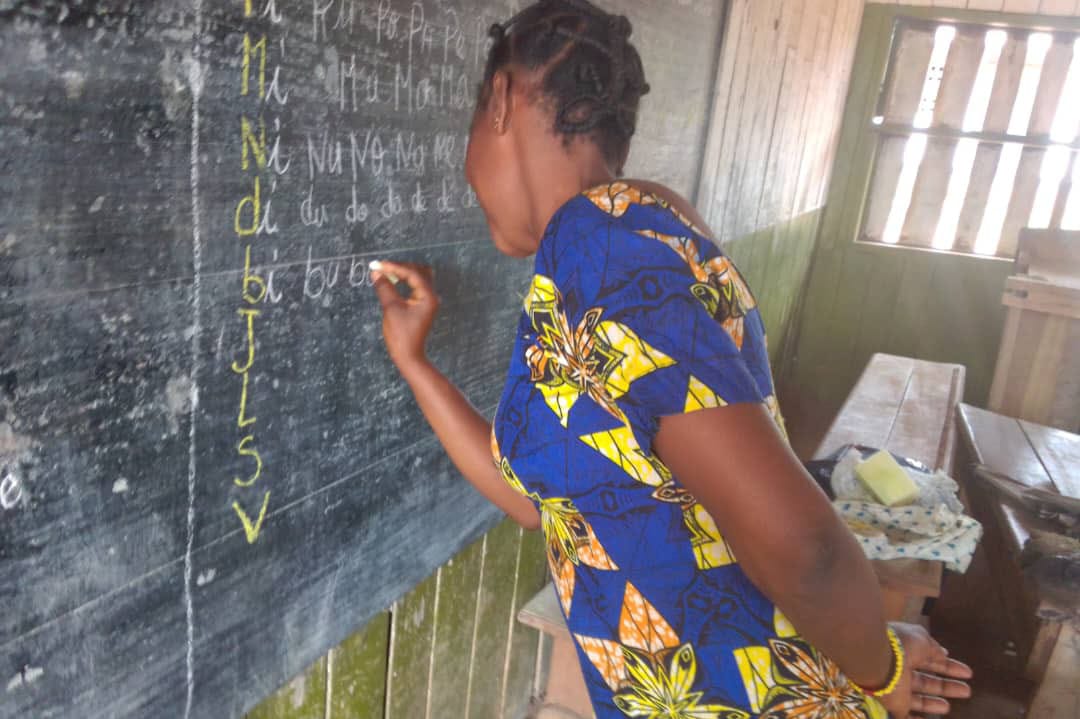 i Ru Po Pa Pe
Mi Mu Mo Ma
Ni Nu No Na Ne
di du do da de de
bi bu b
J
L
S
V
e